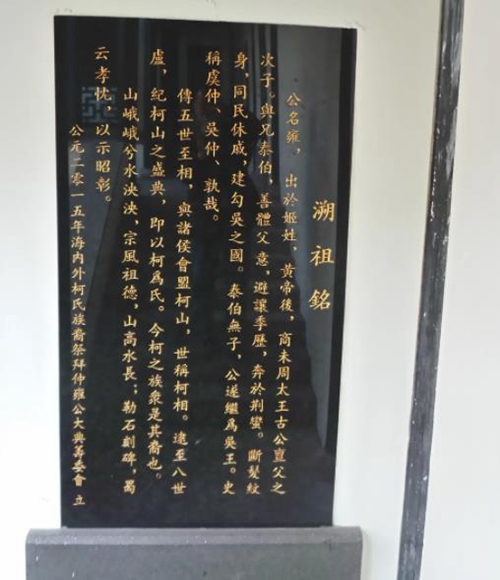 溯祖銘
公名雍，出於姬姓，黃帝後，商末周大王古公亶父之
次子。與兄泰伯，善體父意，避讓季歷，奔於荆蠻。斷髮紋
身，同民休戚，建勾吳之國。泰伯無子，公遂繼爲吳王。史
稱虞仲、吳仲、孰哉。
傳五世至相，與諸侯會盟柯山，世稱柯相。逮至八世
盧，紀柯山之盛典，即以柯爲氏。今柯之族衆是其裔也。
山峨峨兮水泱泱，宗風祖德，山高水長；勒石劃碑，蜀
云孝忱，以示昭彰。
公元二零一五年海内外柯氏族裔祭拜仲雍公大典籌委會 立